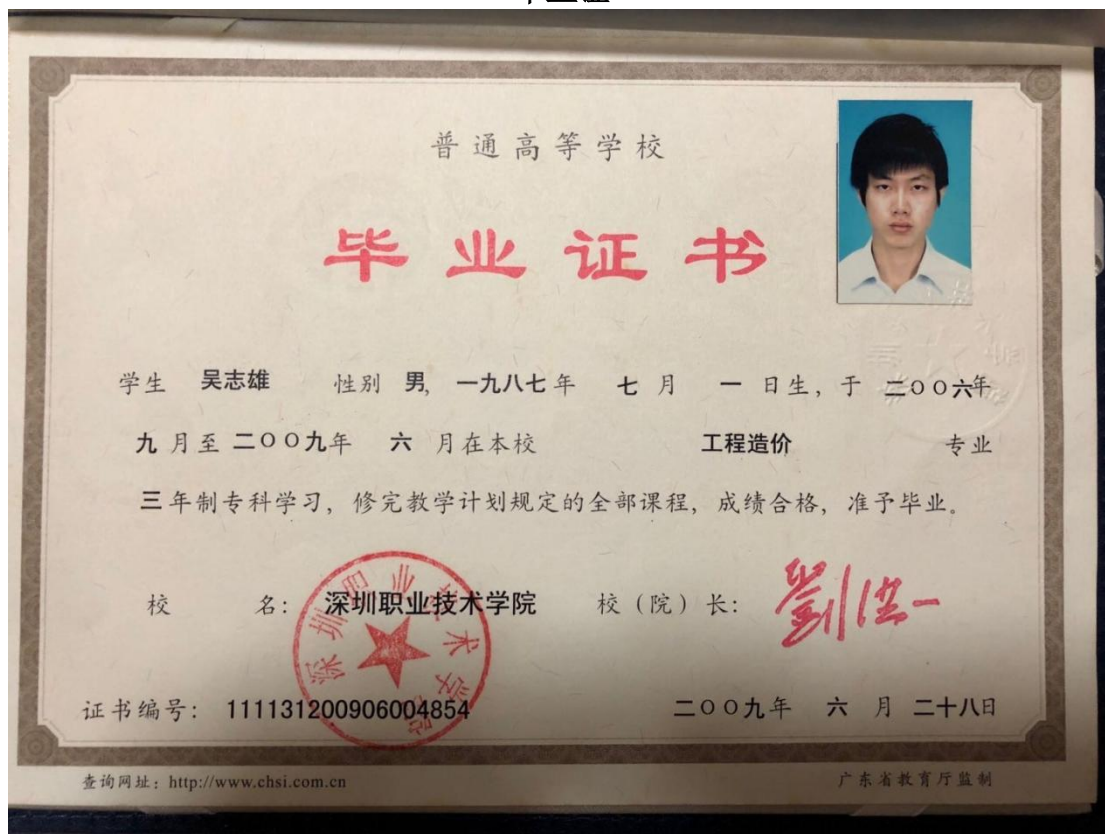 普通高等学校
毕业证书
学生 吴志雄 性别 男, 一九八七年 七 月 一 日生, 于 二〇〇六年
九 月至 二〇〇九年 六 月在本校 工程造价 专业
三年制专科学习, 修完教学计划规定的全部课程, 成绩合格, 准予毕业。
校 名: 深圳职业技术学院 校（院）长: 劉洪一
深圳职业技术学院
证书编号: 111131200906004854 二〇〇九年 六 月 二十八日
查询网址: http://www.chsi.com.cn 广东省教育厅监制